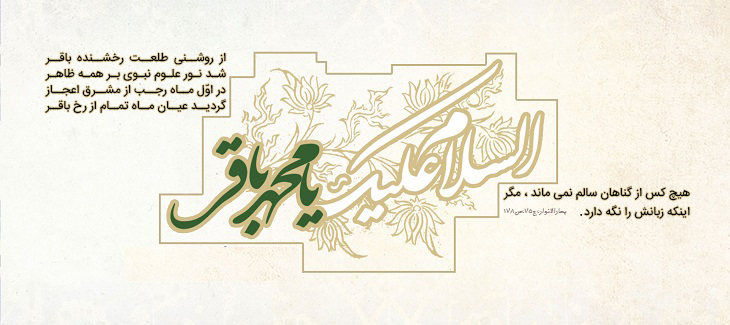 از روشنی طلعت رخشنده باقر
شد نور علوم نبوی بر همه ظاهر
در اوّل ماه رجب از مشرق اعجاز
گردید عیان ماه تمام از رخ باقر
السلام علیک
یا محمد باقر
هیچ کس از گناهان سالم نمی ماند ، مگر
اینکه زبانش را نگه دارد. بحارالانوار،ج۷۵،ص۱۷۸